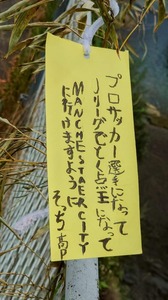 プロサッカー選手になって
Jリーグでとく点王になって
MANCHESTER CITY
に行けますように
そっち高P